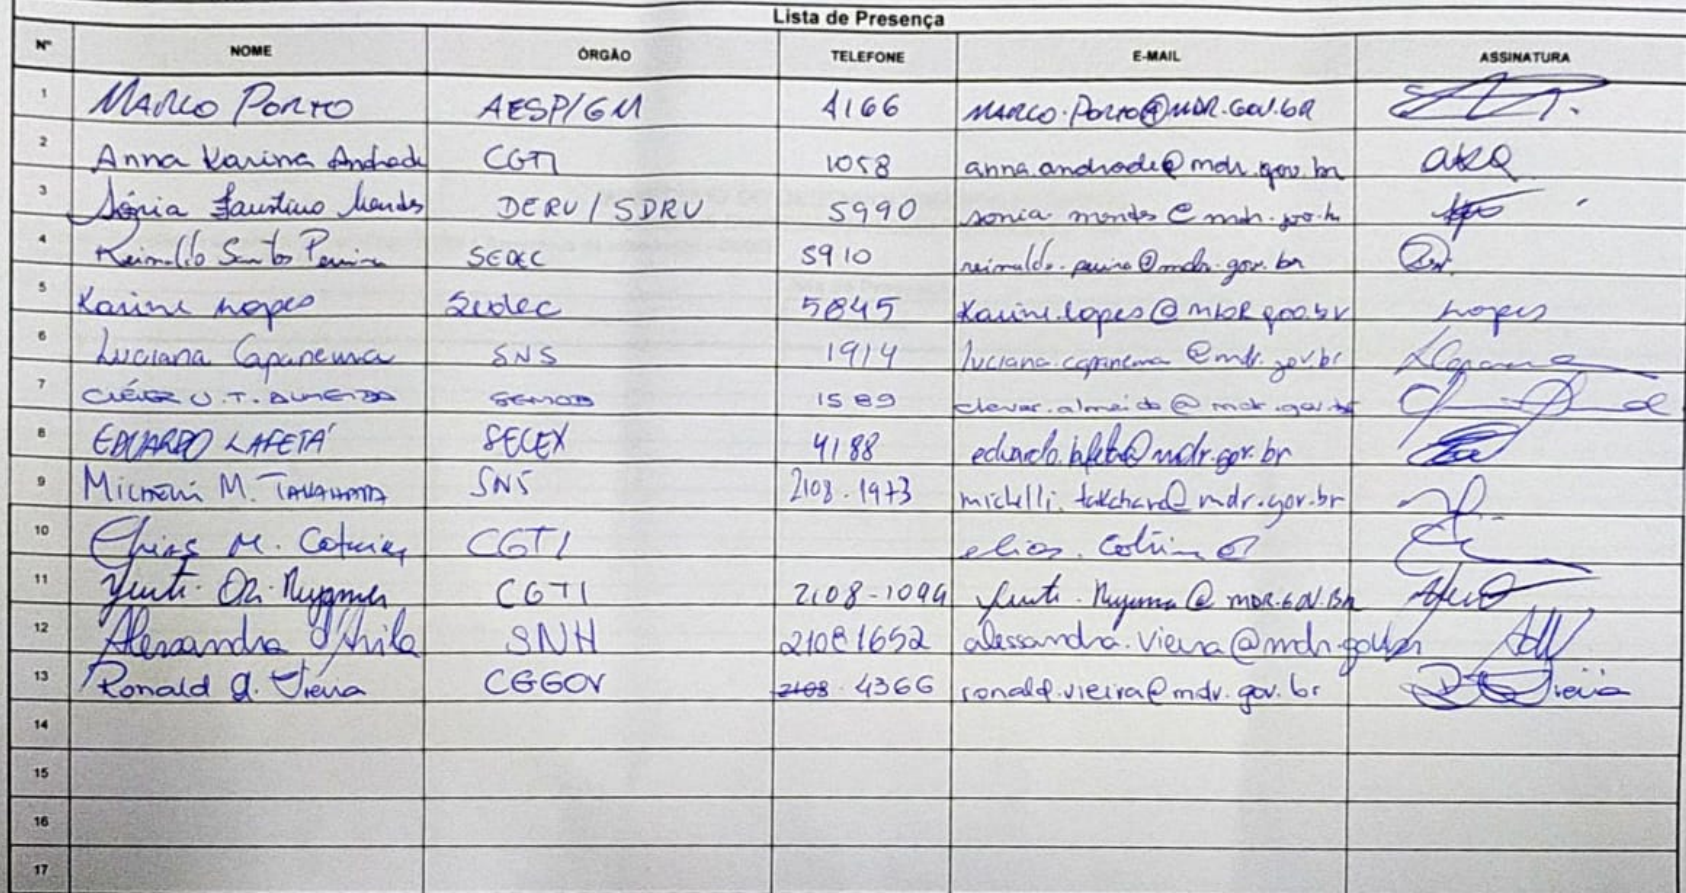 Lista de Presença
Nº NOME ÓRGÃO TELEFONE E-MAIL ASSINATURA
1 MARCO PORTO AESP/GM 4166 MARCO.PORTO@MDR.GOV.BR
2 Anna Karina Andrade CGTI 1058 anna.andrade@mdr.gov.br
3 Sônia Faustino Mendes DERU/SDRU 5990 sonia.mendes@mdr.gov.br
4 Reinaldo Santos Pereira SEDEC 5910
5 Karine Lopes Sedec 5845 Karine.lopes@MDR.gov.br Lopes
6 Luciana Capanema SNS 1914 luciana.capanema@mdr.gov.br
7 U.T. ALMEIDA SEMOB 1589 @mdr.gov.br
8 EDUARDO LAFETÁ SECEX 4188 eduardo.lafeta@mdr.gov.br
9 M. SNS 2108.1973 @mdr.gov.br
10 Elias M. CGTI
11 CGTI 2108-1094 @MDR.GOV.BR
12 Alessandra d'Avila SNH 21081652 alessandra.vieira@mdr.gov.br
13 Ronald Vieira CGGOV 2108.4366 ronald.vieira@mdr.gov.br Vieira
14
15
16
17